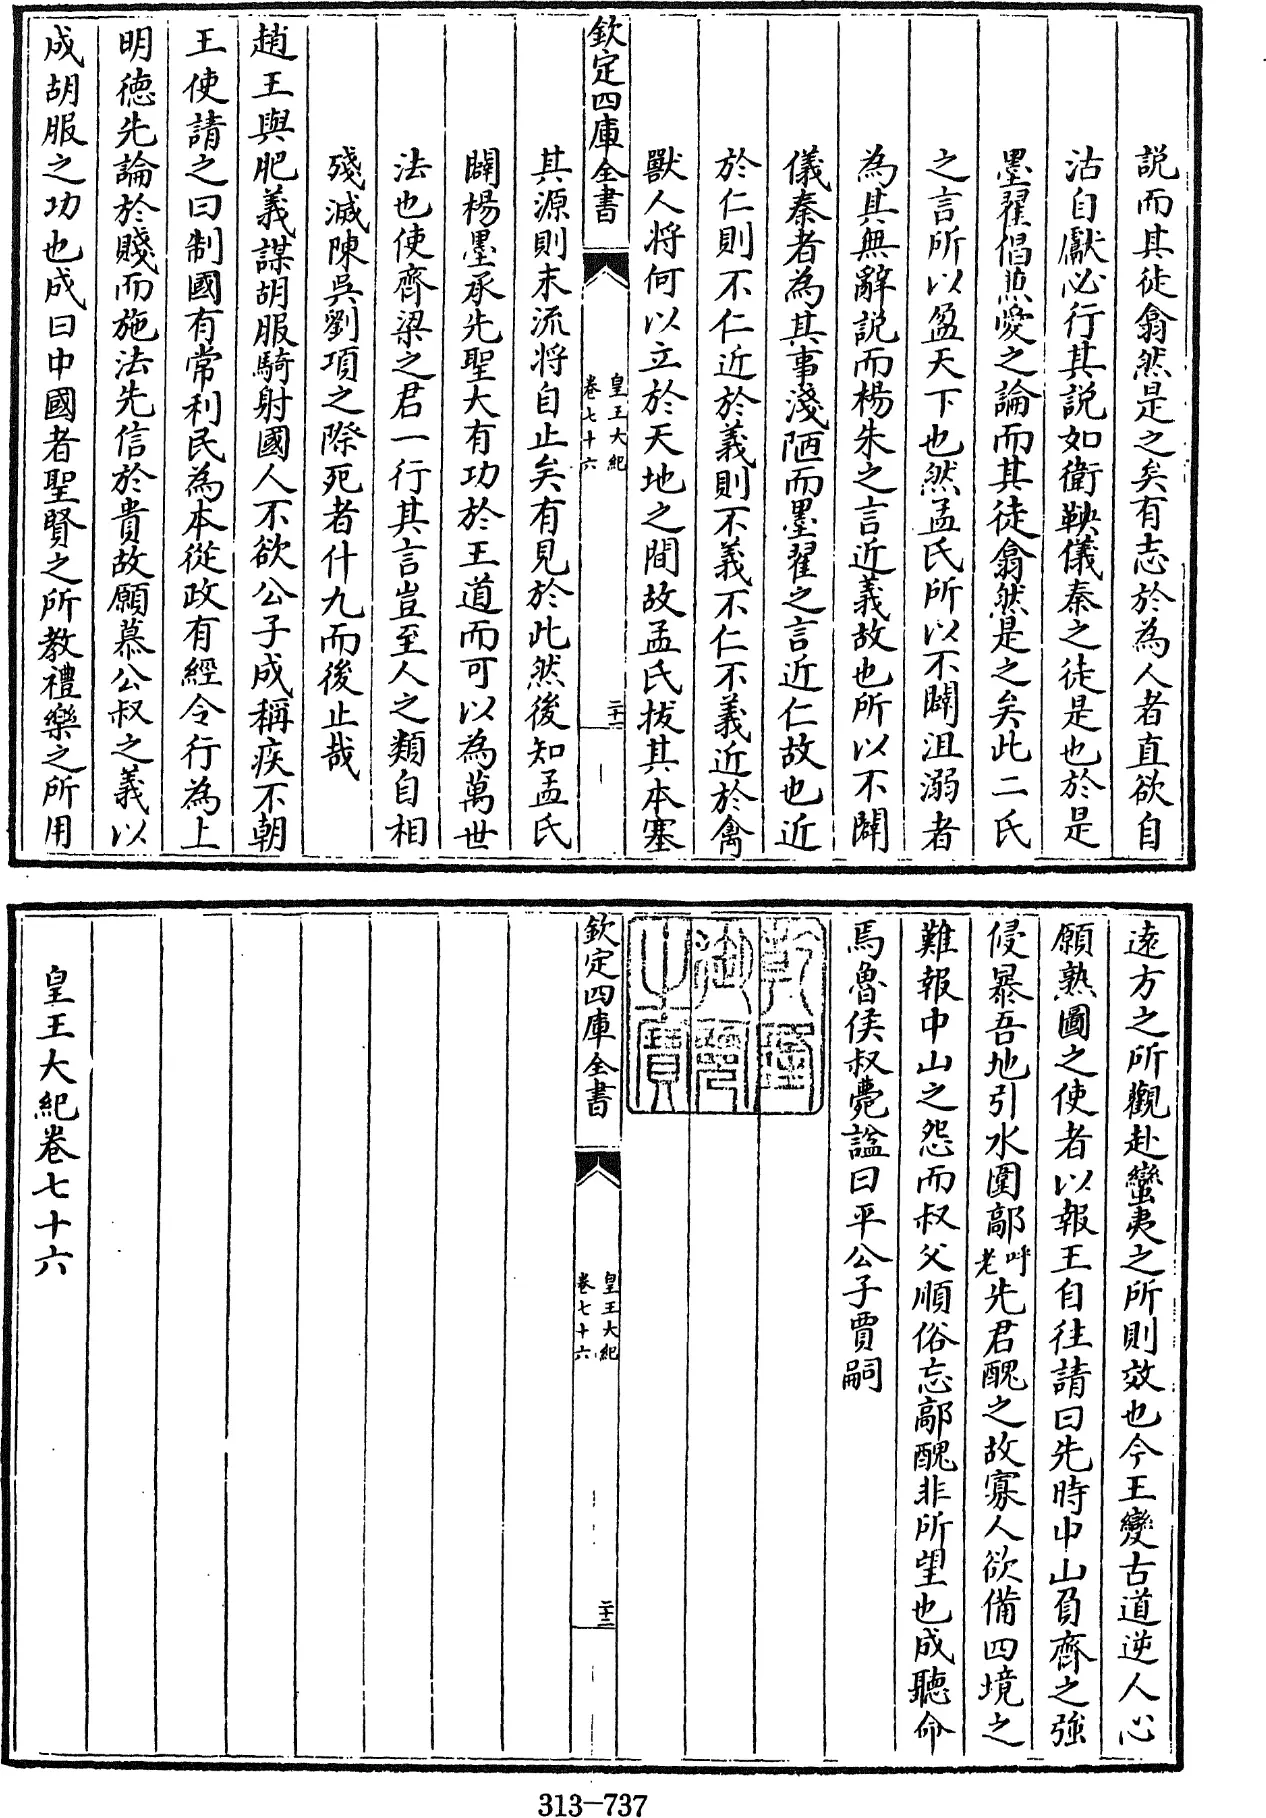 說而其徒翕然是之矣有志於為人者直欲自
沽自獻必行其說如衛鞅儀秦之徒是也於是
墨翟倡兼愛之論而其徒翕然是之矣此二氏
之言所以盈天下也然孟氏所以不闢沮溺者
為其無辭說而楊朱之言近義故也所以不闢
儀秦者為其事淺陋而墨翟之言近仁故也近
於仁則不仁近於義則不義不仁不義近於禽
獸人將何以立於天地之間故孟氏拔其本塞
欽定四庫全書
皇王大紀
卷七十六
二十二
其源則末流將自止矣有見於此然後知孟氏
闢楊墨承先聖大有功於王道而可以為萬世
法也使齊梁之君一行其言豈至人之類自相
殘滅陳吳劉項之際死者什九而後止哉
趙王與肥義謀胡服騎射國人不欲公子成稱疾不朝
王使請之曰制國有常利民為本從政有經令行為上
明德先論於賤而施法先信於貴故願慕公叔之義以
成胡服之功也成曰中國者聖賢之所教禮樂之所用
遠方之所觀赴蠻夷之所則效也今王變古道逆人心
願熟圖之使者以報王自往請曰先時中山負齊之強
侵暴吾地引水圍鄗呼老先君醜之故寡人欲備四境之
難報中山之怨而叔父順俗忘鄗醜非所望也成聽命
焉魯侯叔薨諡曰平公子賈嗣
乾隆御覽之寶
欽定四庫全書
皇王大紀
卷七十六
二十三
皇王大紀卷七十六
313-737